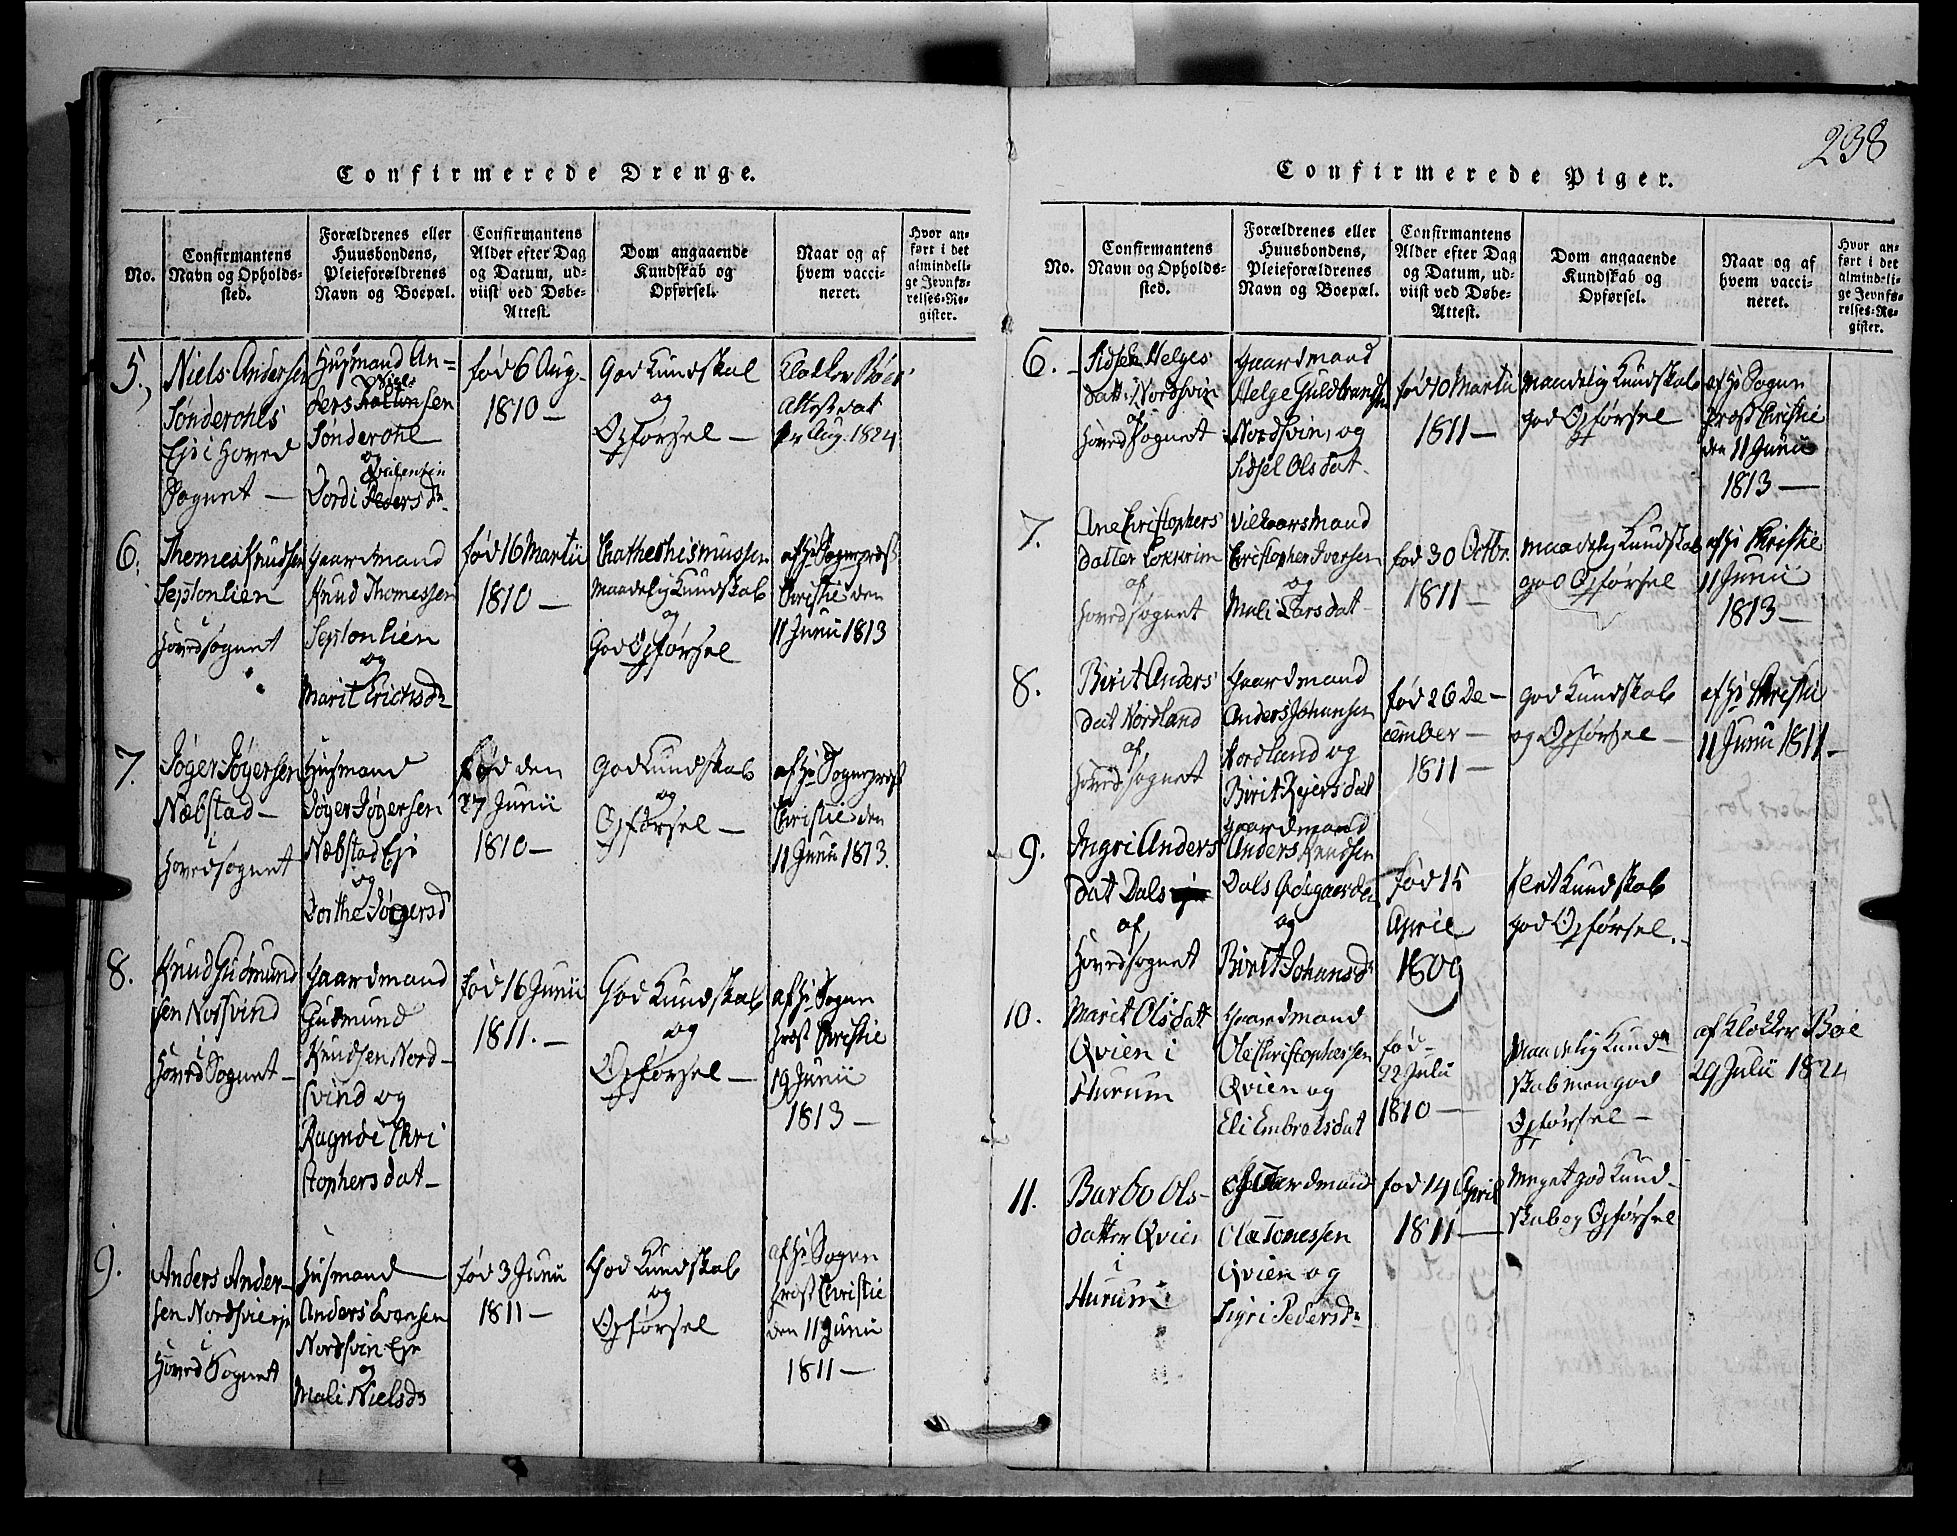 238
Confirmerede Drenge.
No.
Confirmantens
Navn og Opholds-
sted.
Forældrenes eller
Huusbondens,
Pleieforældrenes
Navn og Boepæl.
Confirmantens
Alder efter Dag
og Datum, ud-
viist ved Døbe-
Attest.
Dom angaaende
Kundskab og
Opførsel.
Naar og af
hvem vacci-
neret.
Hvor an-
ført i det
almindeli-
ge Jevnfø-
relses-Re-
gister.
5.
Niels Andersen
Sønderohls
Eje i Hoved
Sognet —
Husmand An-
ders Niels
sen
Sønderohl
og
Dordi Pedersdr
født 6 Aug.
1810 —
God Kundskab
og
Opførsel —
Klokker Bøes
Attest dat
Aug. 1824
6.
Thomes Knudsen
Septonlien
Hovedsognet
Gaardmand
Knud Thomessen
Septonlien
og
Marit Erichsdr
fød 16 Martii
1810 —
maadelig Kundskab
og
God Opførsel
af Hr Sogneprest
Christie den
11 Junii 1813
7.
Jøger Jøgersen
Næbstad —
i
Hovedsognet
Husmand
Jøger Jøgersen
Næbstad Eje
og
Dorthe Jøgersd
fød den
27 Junii
1810 —
God Kundskab
og
Opførsel —
af Hr Sogneprest
Christie den
11 Junii 1813.
8.
Knud Gudmund
sen Norsvind
i
Hoved Sognet —
Gaardmand
Gudmund
Knudsen Nord-
svind og
Ragndi Chri
stophersdat —
fød 16 Junii
1811. —
God Kundskab
og
Opførsel —
af Hr Sogne
Prest Christie
19 Junii
1813 —
9.
Anders Ander-
sen Nordsvie eje
i
Hoved Sognet
Husmand
Anders Evensen
Nordsvin Eje
og
Mali Nielsdr
fød 3 Junii
1811 —
God Kundskab
og
Opførsel
af Hr Sogne
Prest Christie
den 11 Junii
1811 —
Confirmerede Piger.
No.
Confirmantens
Navn og Opholds-
sted.
Forældrenes eller
Huusbondens,
Pleieforældrenes
Navn og Boepæl.
Confirmantens
Alder efter Dag
og Datum, ud-
viist ved Døbe-
Attest.
Dom angaaende
Kundskab og
Opførsel.
Naar og af
hvem vacci-
neret.
Hvor an-
ført i det
almindeli-
ge Jevnfø-
relses-Re-
gister.
6.
Sidsel Helges
datt. Nordsvin
af
Hovedsognet
Gaardmand
Helge Guldbrandsen
Nordsvin, og
Sidsel Olsdat.
fød 10 Martii
1811 —
Maadelig Kundskab
god Opførsel
af Hr Sogne
Prest Christie
den 11 Junii
1813 —
7.
Ane Christophers
datter
af
Hovedsognet
Vilkaarsmand
Christopher Iversen
og
Mali Larsdat
fød 30 Octbr.
1811 —
Maadelig Kundskab
god Opførsel
af Hr Christie
11 Junii
1813 —
8.
Birit Anders
dat Nordland
af
Hovedsognet
Gaardmand
Anders Johansen
Nordland og
Birit Rejersdat
fød 26 De-
cember —
1811 —
god Kundskab
og Opførsel —
af Hr Christie
11 Junii 1811 —
9.
Ingri Anders
dat Dals
af
Hovedsognet
Gaardmand
Anders Knudsen
Dals Ødegaarden
og
Birit Johansdr
Fød 15
April
1809
slet Kundskab
god Opførsel. —
10.
Marit Olsdatt
Qvien i
Hurum
Gaardmand
Ole Christophersen
Qvien og
Eli Embretsdat
fød —
22 Julii
1810 —
Maadelig Kund-
skab men god
Opførsel —
af Klokker Bøe
29 Julii 1824
11.
Barbo Ols-
datter Qvien
i
Hurum
Gaardmand
Ole Tomessen
Qvien og
Sigri Pedersdr
fød 14 April
1811 —
Meget god Kund-
skab og Opførsel